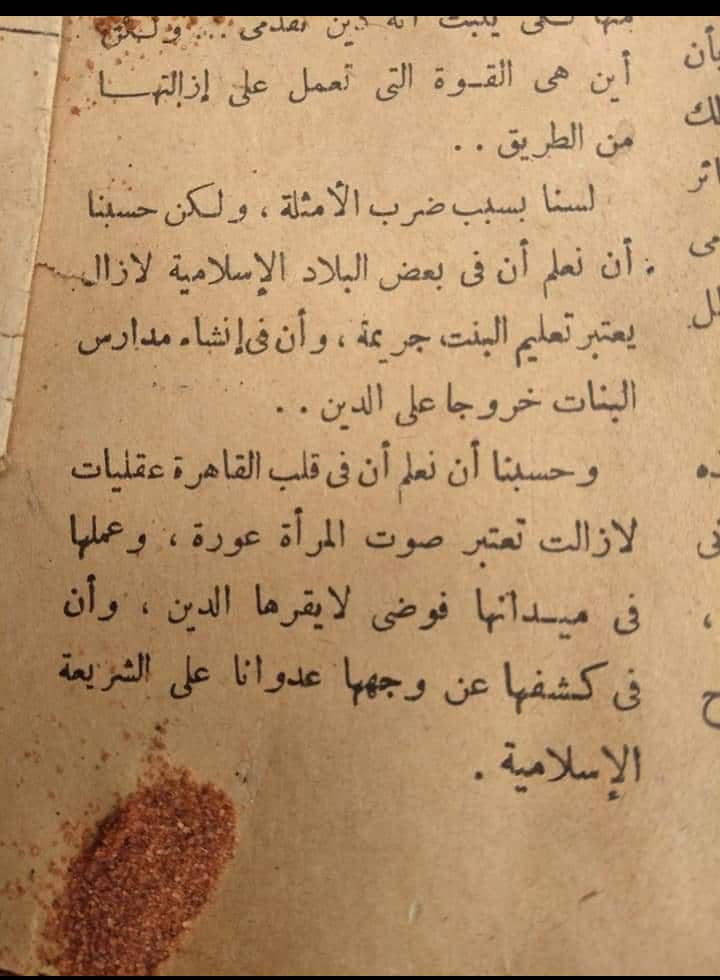 منها لكى يثبت أنه دين تقدمى ... ولكن
أين هى القوة التى تعمل على إزالتها
من الطريق ..
لسنا بسبب ضرب الأمثلة ، ولكن حسبنا
أن نعلم أن فى بعض البلاد الإسلامية لازال
يعتبر تعليم البنت جريمة ، وأن فى إنشاء مدارس
البنات خروجا على الدين ..
وحسبنا أن نعلم أن فى قلب القاهرة عقليات
لازالت تعتبر صوت المرأة عورة ، وعملها
فى ميدانها فوضى لايقرها الدين ، وأن
فى كشفها عن وجهها عدوانا على الشريعة
الإسلامية .